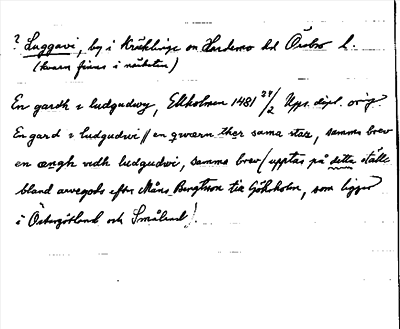 ? Luggavi, by i Kräcklinge om Hardemo hd Örebro l.
(kvarn finns i närheten)
En gardh i ludgudwy, Ekholmen 1481 24/2 Upps. dipl. orig.
En gard i ludgudwi // en qwærn ther sama stæz, samma brev
en ængh vidh ludgudwi, samma brev (upptas på detta ställe
bland arvegods efter Måns Bengtsson till Göksholm, som ligger
i Östergötland och Småland!